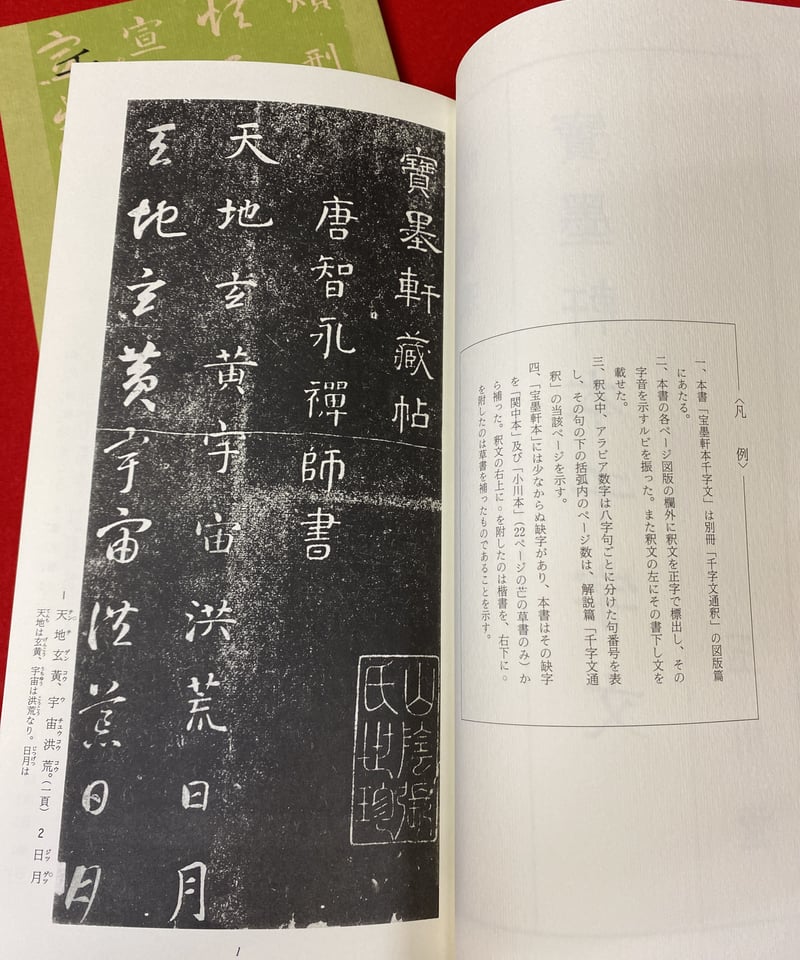 〈凡 例〉
一、本書「宝墨軒本千字文」は別冊「千字文通釈」の図版篇
にあたる。
二、本書の各ページ図版の欄外に釈文を正字で標出し、その
字音を示すルビを振った。また釈文の左にその書下し文を
載せた。
三、釈文中、アラビア数字は八字句ごとに分けた句番号を表
し、その句の下の括弧内のページ数は、解説篇「千字文通
釈」の当該ページを示す。
四、「宝墨軒本」には少なからぬ缺字があり、本書はその缺字
を「関中本」及び「小川本」（22ページの芒の草書のみ）か
ら補った。釈文の右上に。を附したのは楷書を、右下に。
を附したのは草書を補ったものであることを示す。
寶墨軒藏帖
山陰張
氏世珍
唐智永禪師書
天地玄黄宇宙洪荒日月
天地玄黄宇宙洪荒日月
1 天地玄黄、宇宙洪荒。（一頁） 2 日月
天地は玄黄、宇宙は洪荒なり。日月は
1